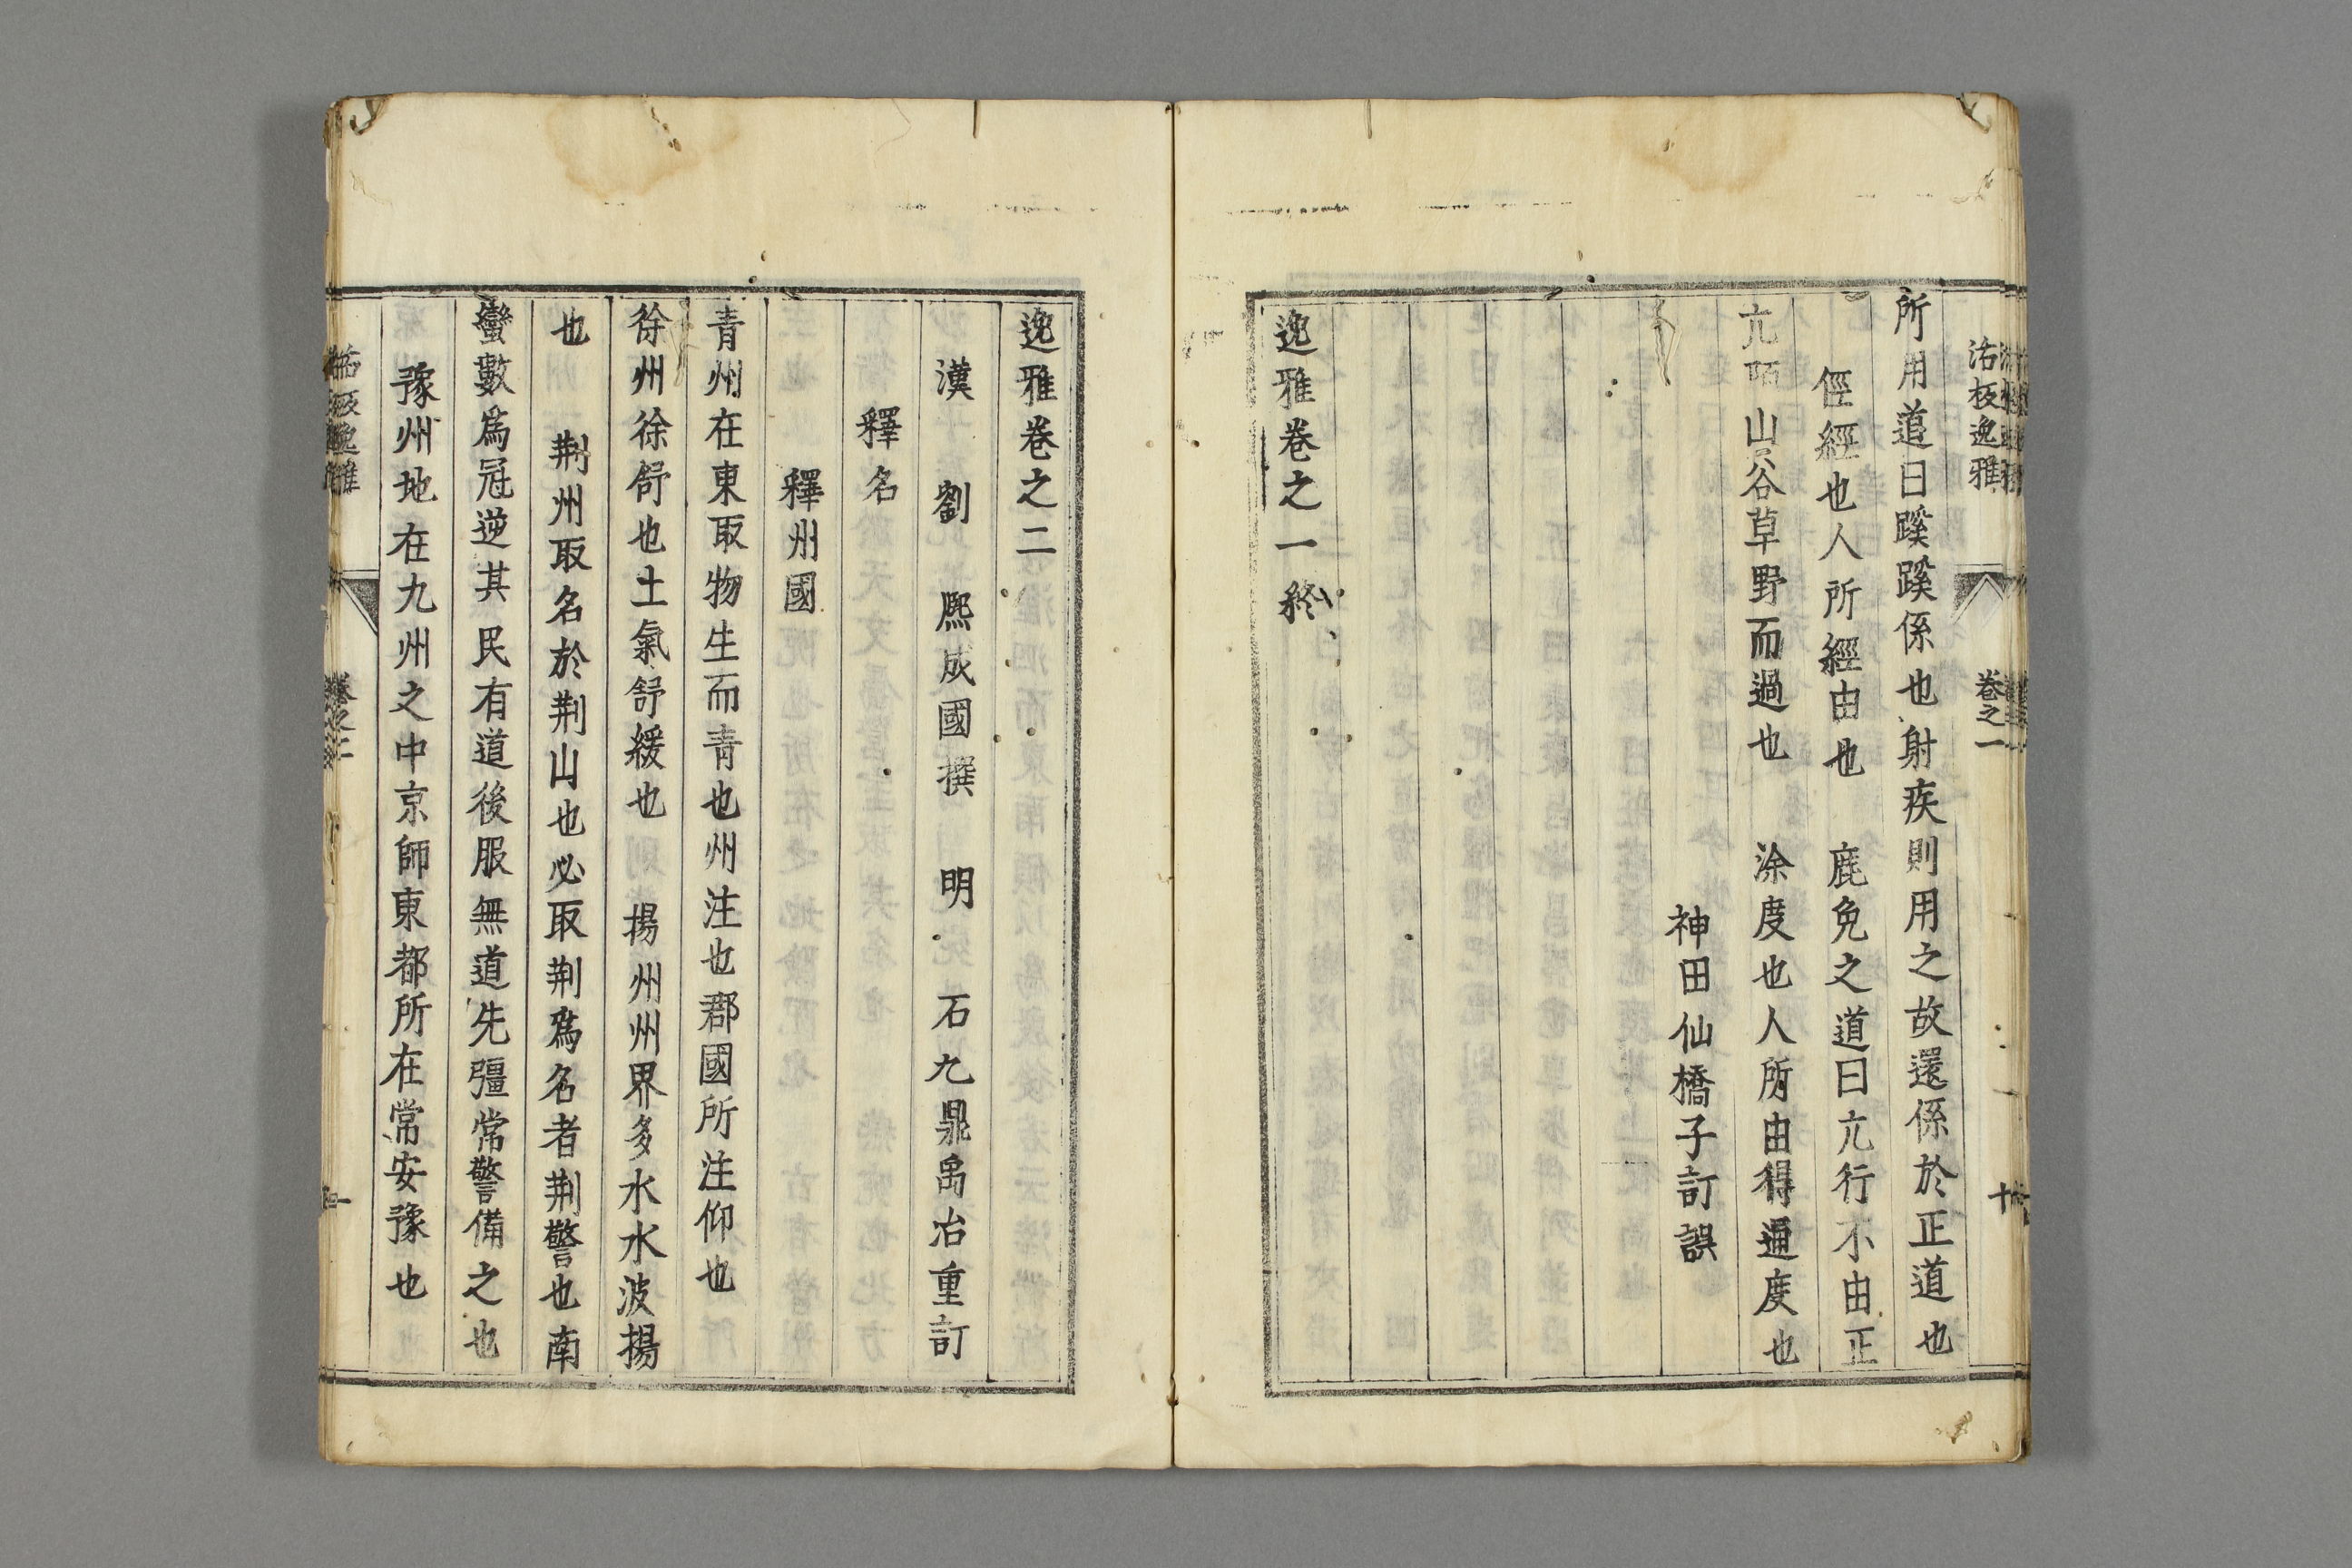 活板逸雅 卷之一 十
所用道曰蹊蹊係也射疾則用之故還係於正道也
俓經也人所經由也 鹿兔之道曰亢行不由正
亢陌山谷草野而過也 涂度也人所由得通度也
神田仙橋子訂誤
逸雅卷之一終
逸雅卷之二
漢 劉 熈成國撰 明 石九鼎禹冶重訂
釋名
釋州國
青州在東取物生而青也州注也郡國所注仰也
徐州徐舒也土氣舒緩也 揚州州界多水水波揚
也 荆州取名於荆山也必取荆爲名者荆警也南
蠻數爲冦逆其民有道後服無道先彊常警備之也
豫州地在九州之中京師東都所在常安豫也
活板逸雅 卷之二 一